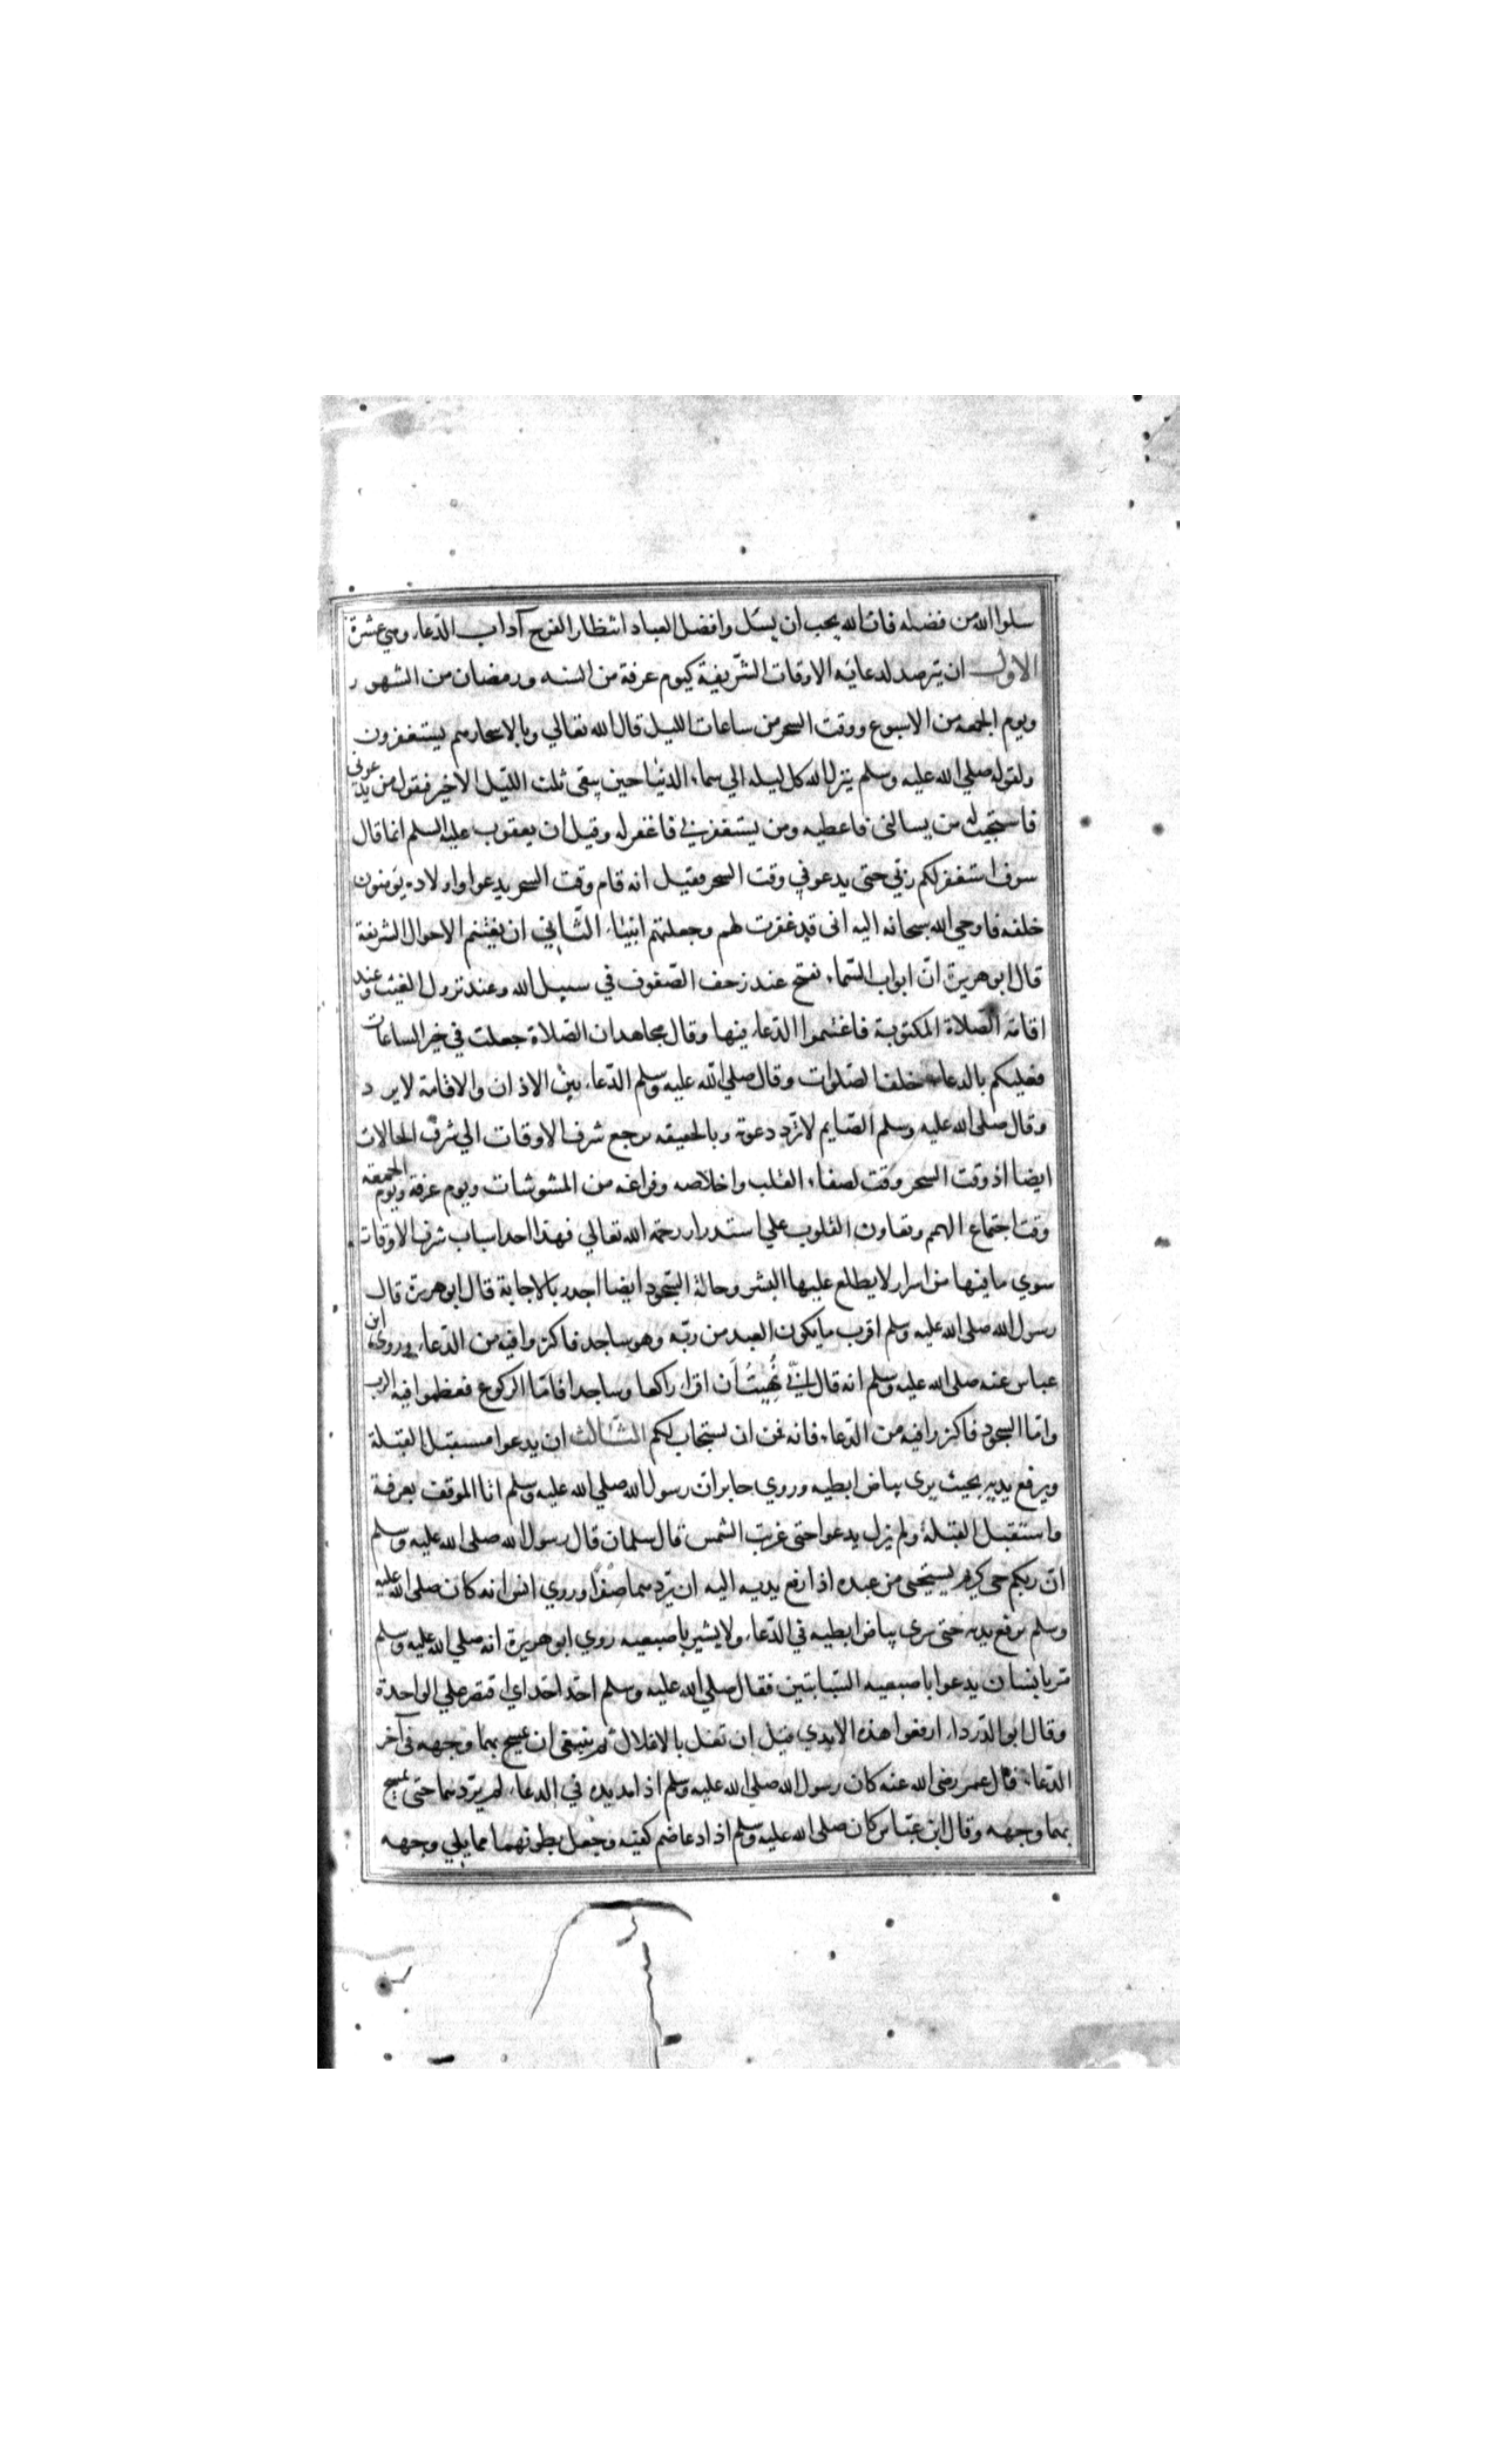 سلوا الله من فضله فان الله يحب ان يسئل وافضل العباد انتظار الفرج آداب الدعاء وهي عشرة
الاول ان يترصد لدعائه الاوقات الشريفة كيوم عرفة من السنه ورمضان من الشهور
ويوم الجمعه من الاسبوع ووقت السحر من ساعات الليل قال الله تعالي وبالاسحار هم يستغفرون
ولقوله صلي الله عليه وسلم ينزل الله كل ليله الي سماء الدنيا حين يبقى ثلث الليل الاخير فيقول من يدعوني
فاستجيب له من يسالنى فاعطيه ومن يستغفرني فاغفر له وقيل ان يعقوب عليه السلم انما قال
سوف استغفر لكم ربي حتى يدعو في وقت السحر فقيل انه قام وقت السحر يدعوا واولاده يؤمنون
خلفه فاوحي الله سبحانه اليه انى قد غفرت لهم وجعلتهم انبياء الثاني ان يغتنم الاحوال الشريفة
قال ابو هريرة ان ابواب السماء تفتح عند زحف الصفوف في سبيل الله وعند نزول الغيث وعند
اقامة الصلاة المكتوبة فاغتنموا الدعاء فيها وقال مجاهد ان الصلاة جعلت في خير الساعات
فعليكم بالدعاء خلف الصلوات وقال صلي الله عليه وسلم الدعاء بين الاذان والاقامة لا يرد
وقال صلى الله عليه وسلم الصايم لا ترد دعوته وبالحقيقه يرجع شرف الاوقات الي شرف الحالات
ايضا اذ وقت السحر وقت لصفاء القلب واخلاصه وفراغه من المشوشات ويوم عرفة ويوم الجمعة
وقت اجتماع الهمم وتعاون القلوب علي استدرار رحمة الله تعالي فهذا احد اسباب شرف الاوقات
سوي ما فيها من اسرار لا يطلع عليها البشر وحالة السجود ايضا اجدر بالاجابة قال ابو هريرة قال
رسول الله صلى الله عليه وسلم اقرب ما يكون العبد من ربه وهو ساجد فاكثروا فيه من الدعاء وروي ابن
عباس عنه صلى الله عليه وسلم انه قال اني نُهِيتُ أن اقرا راكعا وساجدا فاما الركوع فعظموا فيه الرب
واما السجود فاكثروا فيه من الدعاء فانه قمن ان يستجاب لكم الثالث ان يدعوا مستقبل القبلة
ويرفع يديه بحيث يرى بياض ابطيه وروي جابر ان رسول الله صلي الله عليه وسلم اتا الموقف بعرفة
واستقبل القبلة ولم يزل يدعوا حتى غربت الشمس قال سلمان قال رسول الله صلى الله عليه وسلم
ان ربكم حي كريم يستحيى من عبده اذا رفع يديه اليه ان يردهما صفرا وروي انس انه كان صلى الله عليه
وسلم يرفع يديه حتى يرى بياض ابطيه في الدعاء ولا يشير باصبعيه روي ابو هريرة انه صلي الله عليه وسلم
مر بانسان يدعوا باصبعيه السبابتين فقال صلي الله عليه وسلم احد احد اي اقتصر علي الواحدة
وقال ابو الدرداء ارفعوا هذه الايدي قبل ان تغل بالاغلال ثم ينبغى ان يمسح بهما وجهه في آخر
الدعاء قال عمر رضى الله عنه كان رسول الله صلي الله عليه وسلم اذا مد يديه في الدعاء لم يردهما حتى يمسح
بهما وجهه وقال ابن عباس كان صلى الله عليه وسلم اذا دعا ضم كفيه وجعل بطونهما مما يلي وجهه